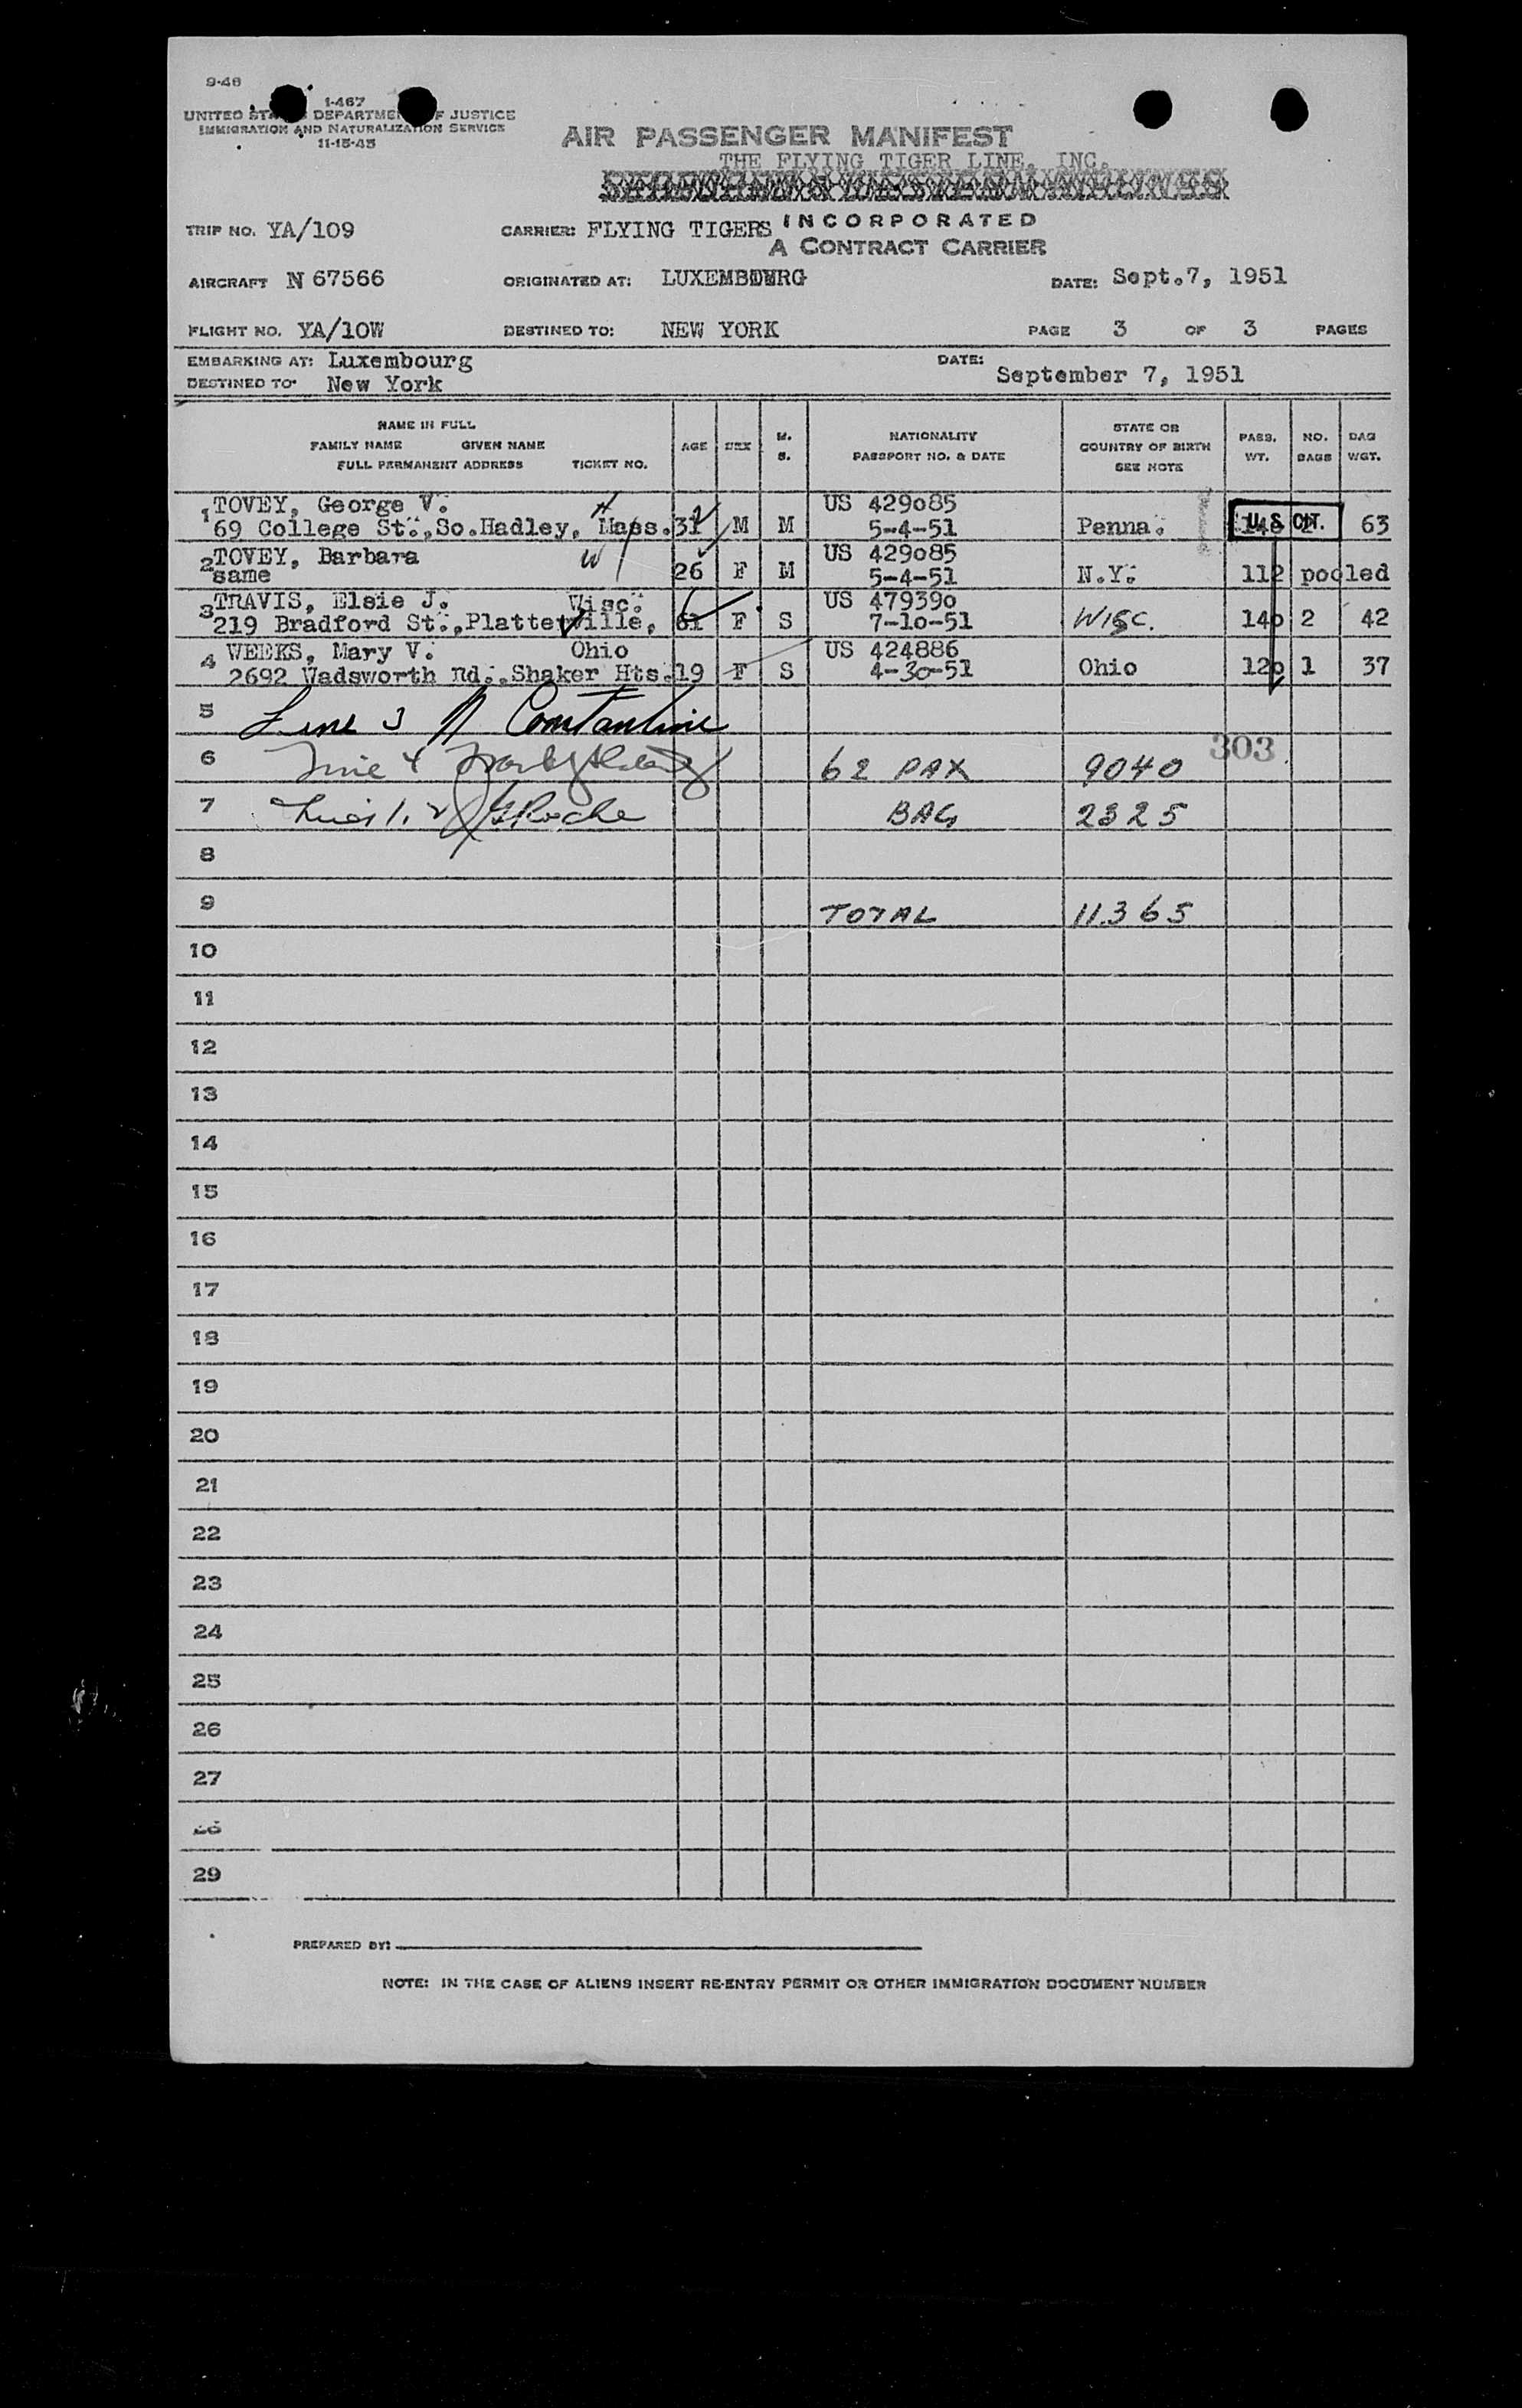 9-46
I-467
UNITED STATES DEPARTMENT OF JUSTICE
IMMIGRATION AND NATURALIZATION SERVICE
11-15-45
AIR PASSENGER MANIFEST
THE FLYING TIGER LINE, INC.
INCORPORATED
A CONTRACT CARRIER
TRIP NO. YA/109 CARRIER: FLYING TIGERS
AIRCRAFT N 67566 ORIGINATED AT: LUXEMBOURG DATE: Sept.7, 1951
FLIGHT NO. YA/10W DESTINED TO: NEW YORK PAGE 3 OF 3 PAGES
EMBARKING AT: Luxembourg DATE:
DESTINED TO: New York September 7, 1951
NAME IN FULL
FAMILY NAME GIVEN NAME
FULL PERMANENT ADDRESS TICKET NO.
AGE SEX M. S.
NATIONALITY
PASSPORT NO. & DATE
STATE OR
COUNTRY OF BIRTH
SEE NOTE
PASS. WT.
NO. BAGS
BAG WGT.
1 TOVEY, George V. H US 429085
69 College St.,So.Hadley, Mass. 31 M M 5-4-51 Penna. U.S. CIT. 63
2 TOVEY, Barbara W US 429085
same 26 F M 5-4-51 N.Y. 112 pooled
3 TRAVIS, Elsie J. Wisc. US 479390
219 Bradford St.,Platteville, 61 F S 7-10-51 WISC. 140 2 42
4 WEEKS, Mary V. Ohio US 424886
2692 Wadsworth Rd.,Shaker Hts. 19 F S 4-30-51 Ohio 120 1 37
5 Line 3 N Constantine
303
6 Line 4 62 PAX 9040
7 Lines 1, 2 Roche BAG 2325
8
9 TOTAL 11365
10
11
12
13
14
15
16
17
18
19
20
21
22
23
24
25
26
27
28
29
PREPARED BY:
NOTE: IN THE CASE OF ALIENS INSERT RE-ENTRY PERMIT OR OTHER IMMIGRATION DOCUMENT NUMBER